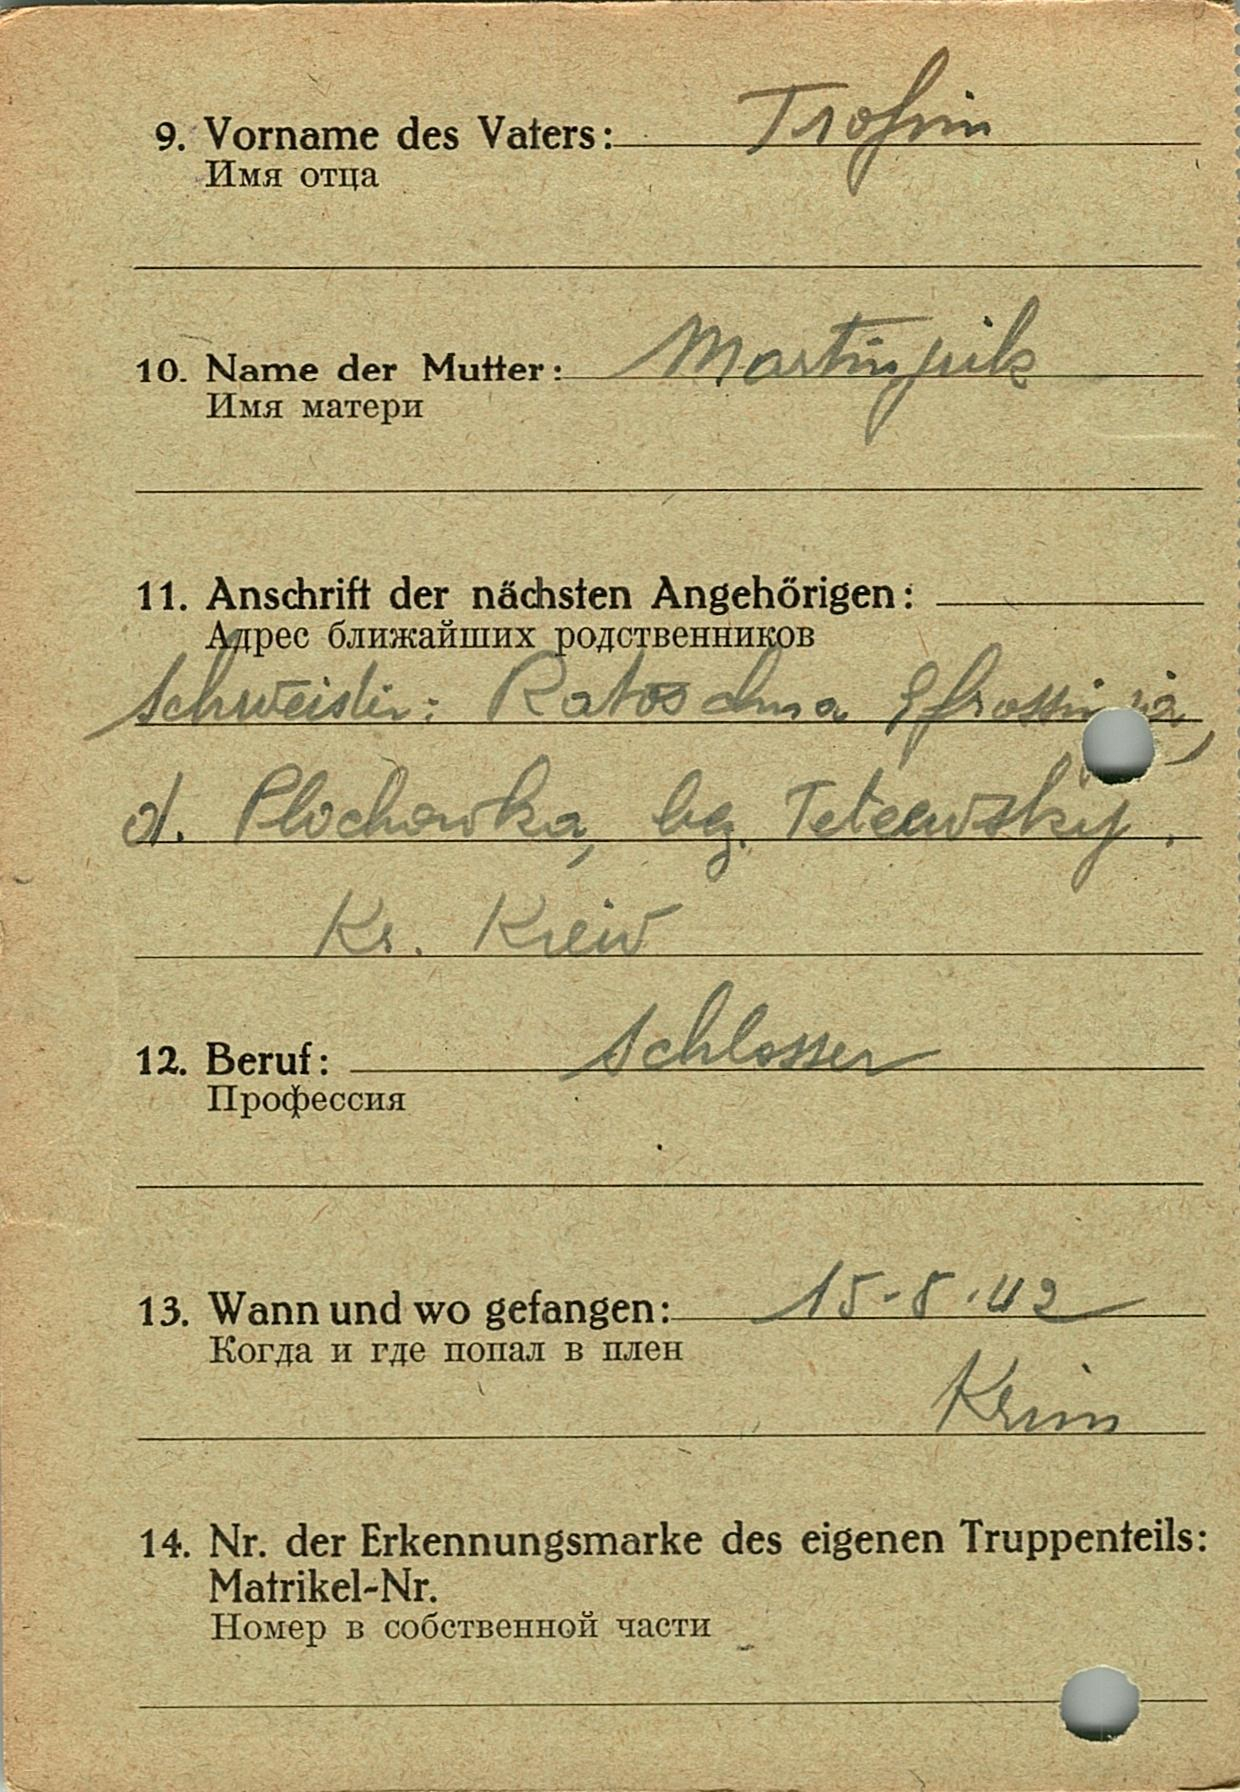 9. Vorname des Vaters: Trofim
Имя отца
10. Name der Mutter: Martinjuk
Имя матери
11. Anschrift der nächsten Angehörigen:
Адрес ближайших родственников
Schwester: Efrossinia,
d. Plochowka, bg. Teteewsky.
Kr. Kiew
12. Beruf: Schlosser
Профессия
13. Wann und wo gefangen: 15-5.42
Когда и где попал в плен
Krim
14. Nr. der Erkennungsmarke des eigenen Truppenteils:
Matrikel-Nr.
Номер в собственной части